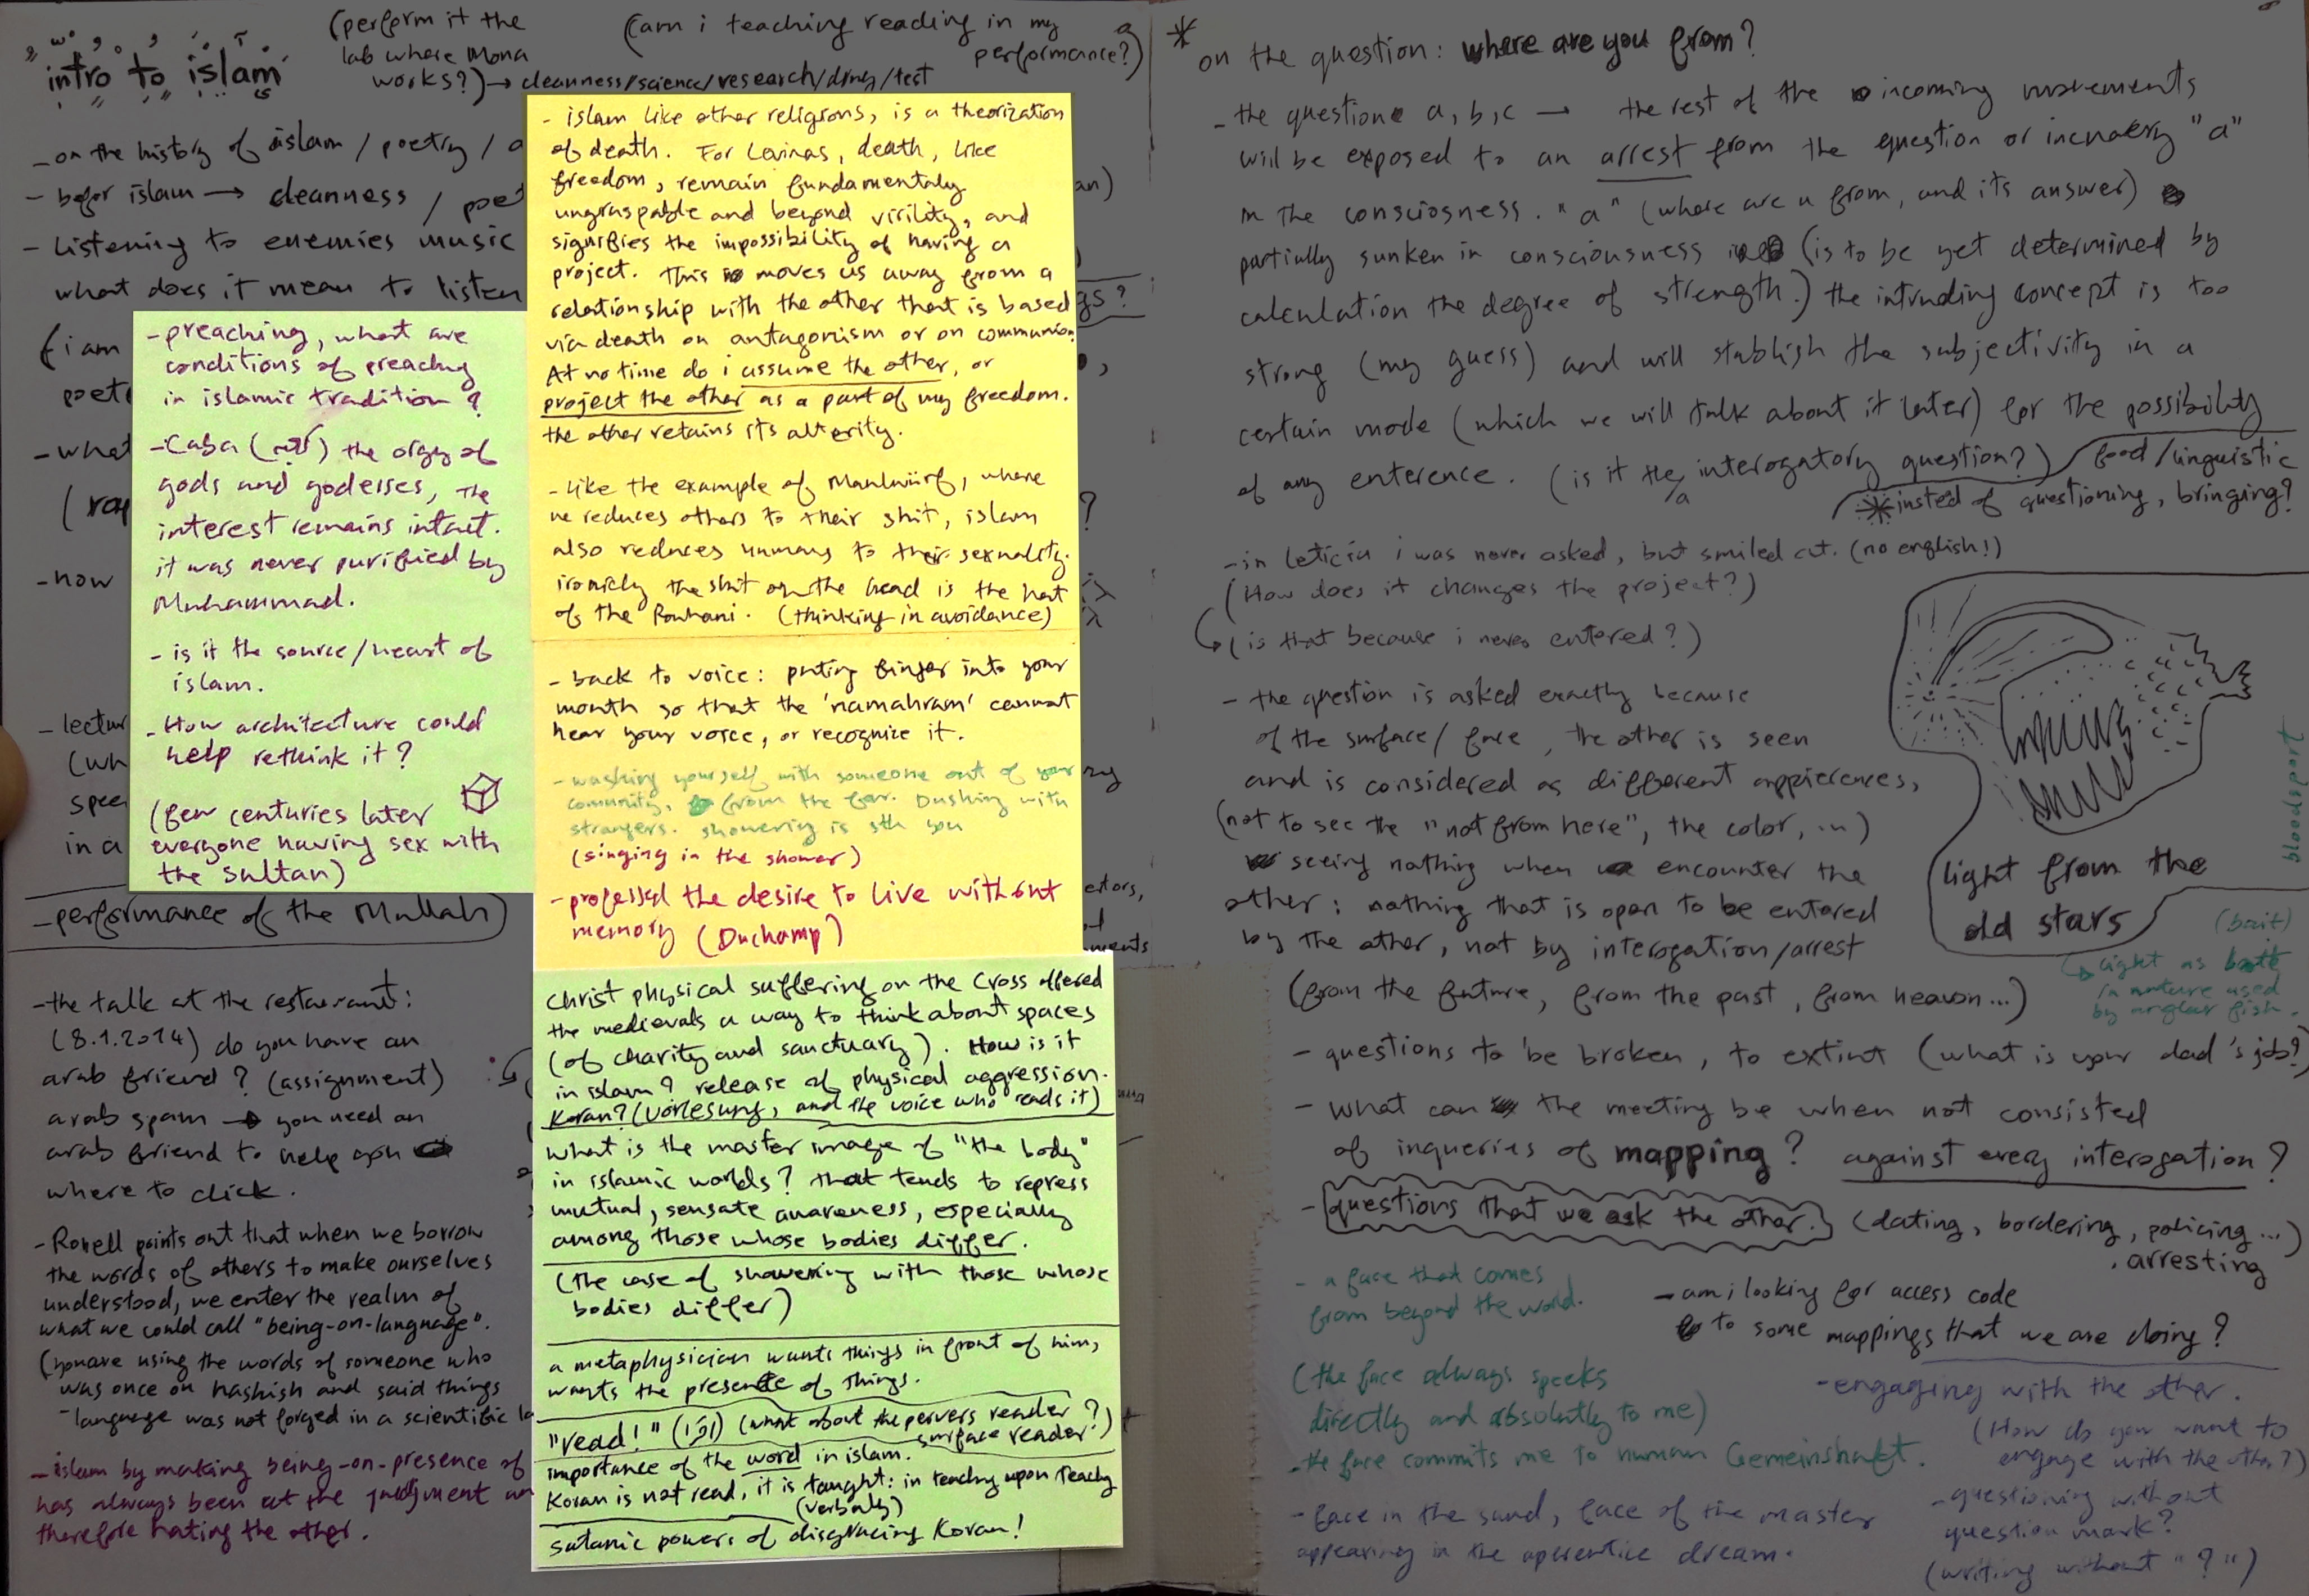 "intro to islam"
(perform it the
lab where Mona
works?) → cleanness/science/research/drug/test
(am i teaching reading in my
performance?)
- on the history of islam / poetry / a
- befor islam → cleanness / poet
- Listening to enemies music
what does it mean to listen
(i am
poet
- what
(
- how
- lectur
(wh
spee
in a
- performance of the Mullah)
- the talk at the restaurant:
(8.1.2014) do you have an
arab friend? (assignment)
arab spam → you need an
arab friend to help
where to click.
- Ronell points out that when we borrow
the words of others to make ourselves
understood, we enter the realm of
what we could call "being-on-language".
(you are using the words of someone who
was once on hashish and said things
- language was not forged in a scientific la
- islam by making being-on-presence of
has always been at the judgment an
therefore hating the other.
- preaching, what are
conditions of preachng
in islamic tradition?
- Caba () the orgy of
gods and godesses, the
interest remains intact.
it was never purified by
Muhammad.
- is it the source/heart of
islam.
- How architecture could
help rethink it?
(few centuries later
everyone having sex with
the sultan)
- islam like other religions, is a theorization
of death. For Levinas, death, like
freedom, remain fundamentaly
ungraspable and beyond virility, and
signifies the impossibility of having a
project. This moves us away from a
relationship with the other that is based
via death on antagonism or on communion.
At no time do i assume the other, or
project the other as a part of my freedom.
the other retains its alterity.
- like the example of Maulwürf, where
he reduces others to their shit, islam
also reduces humans to their sexuality.
ironicly the shit on the head is the hat
of the Rouhani. (thinking in avoidance)
- back to voice: puting finger into your
mouth so that the 'namahram' cannot
hear your voice, or recognize it.
- washing yourself with someone out of your
community, from the far. Dushing with
strangers. showering is sth you
(singing in the shower)
- professed the desire to live without
memory (Duchamp)
Christ physical suffering on the Cross offered
the medievals a way to think about spaces
(of charity and sanctuary). How is it
in islam? release of physical aggression.
Koran? (vorlesung, and the voice who reads it)
What is the master image of "the body"
in islamic worlds? that tends to repress
mutual, sensate awareness, especially
among those whose bodies differ.
(the case of showering with those whose
bodies differ)
a metaphysician wants things in front of him,
wants the presence of things.
"read!" (اقرا) (what about the pervers reader?
surface reader?)
importance of the word in islam.
Koran is not read, it is taught: in teachng upon teachg
(verbaly)
satanic powers of disgracing Koran!
* on the question: where are you from?
- the question a, b, c → the rest of the incoming movements
will be exposed to an arrest from the question or "a"
in the consciosness. "a" (where are u from, and its answer)
partially sunken in consciousness (is to be yet determined by
calculation the degree of strength.) the intruding concept is too
strong (my guess) and will stablish the subjectivity in a
certain mode (which we will talk about it later) for the possibility
of any enterence. (is it the/a interogatory question?) food/linguistic
* insted of questioning, bringing?
- in leticia i was never asked, but smiled at. (no english!)
(How does it changes the project?)
(is that because i never entered?)
- the question is asked exactly because
of the surface/face, the other is seen
and is considered as different appierences,
(not to see the "not from here", the color, ...)
seeing nothing when encounter the
other: nothing that is open to be entered
by the other, not by interogation/arrest
(from the future, from the past, from heaven...)
light from the
old stars
bloodsport
(bait)
light as bait
in nature used
by anglar fish.
- questions to be broken, to extint (what is your dad's job?)
- what can the meeting be when not consisted
of inqueries of mapping? against every interogation?
- questions that we ask the other. (dating, bordering, policing...)
, arresting
- a face that comes
from beyond the world.
- am i looking for access code
to some mappings that we are doing?
(the face always speeks
directly and absolutly to me)
- the face commits me to human Gemeinshaft.
- engaging with the other.
(How do you want to
engage with the other?)
- face in the sand, face of the master
appearing in the aperentice dream.
- questioning without
question mark?
(writing without "?")